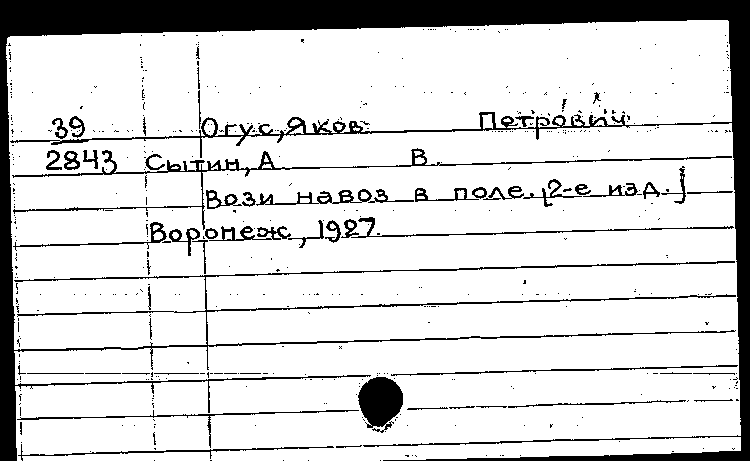 39 Огус, Яков Петрович
2843 Сытин, А В.
Вози навоз в поле. [2-е изд.]
Воронеж, 1927